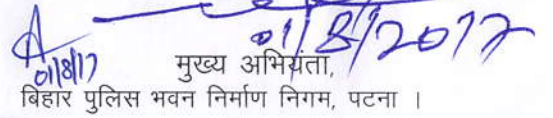 01/8/2017
01/8/17
मुख्य अभियंता,
बिहार पुलिस भवन निर्माण निगम, पटना ।